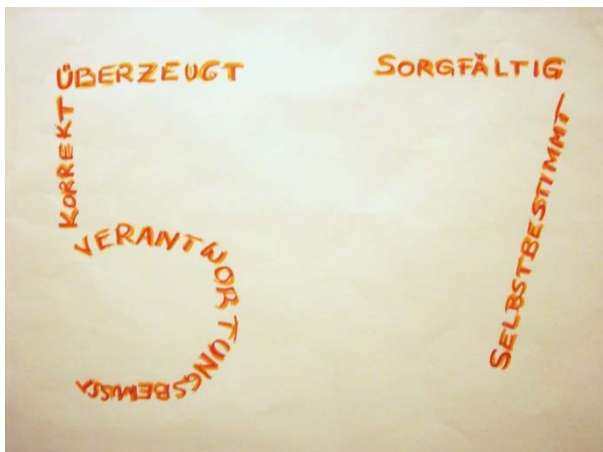 ÜBERZEUGT
KORREKT
VERANTWORTUNGSBEWUSST
SORGFÄLTIG
SELBSTBESTIMMT